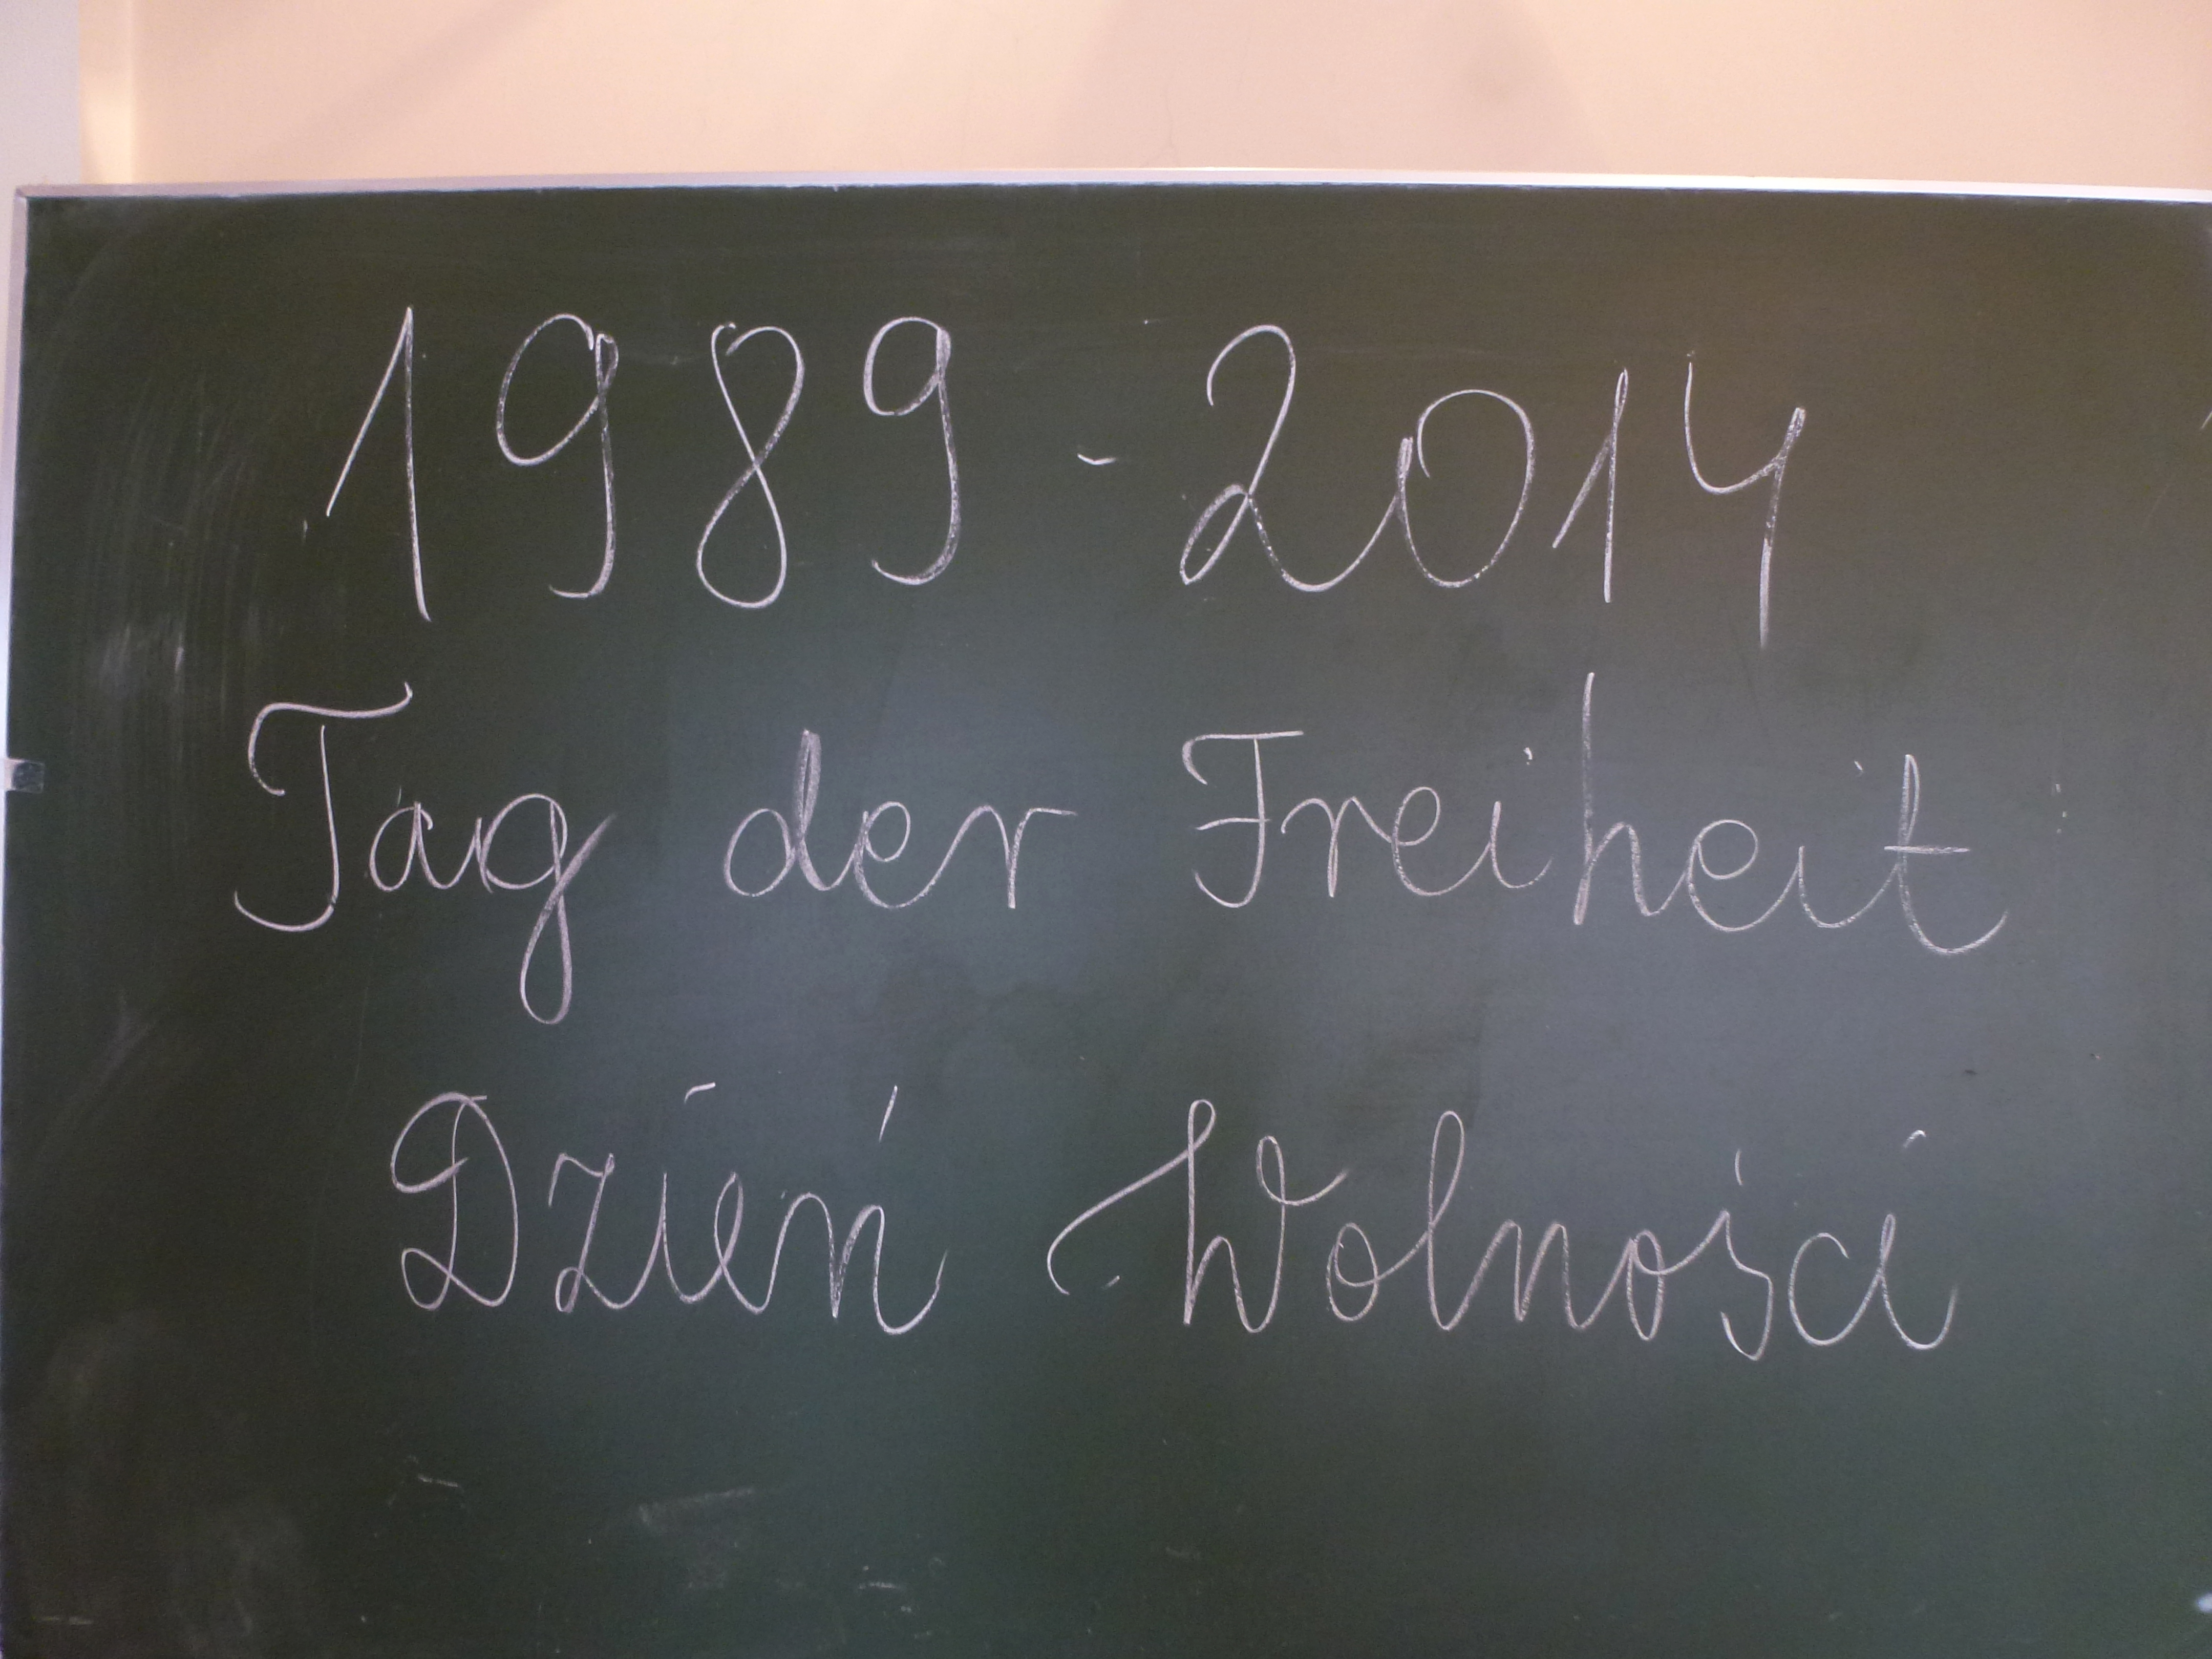 1989-2014
Tag der Freiheit
Dzień Wolności